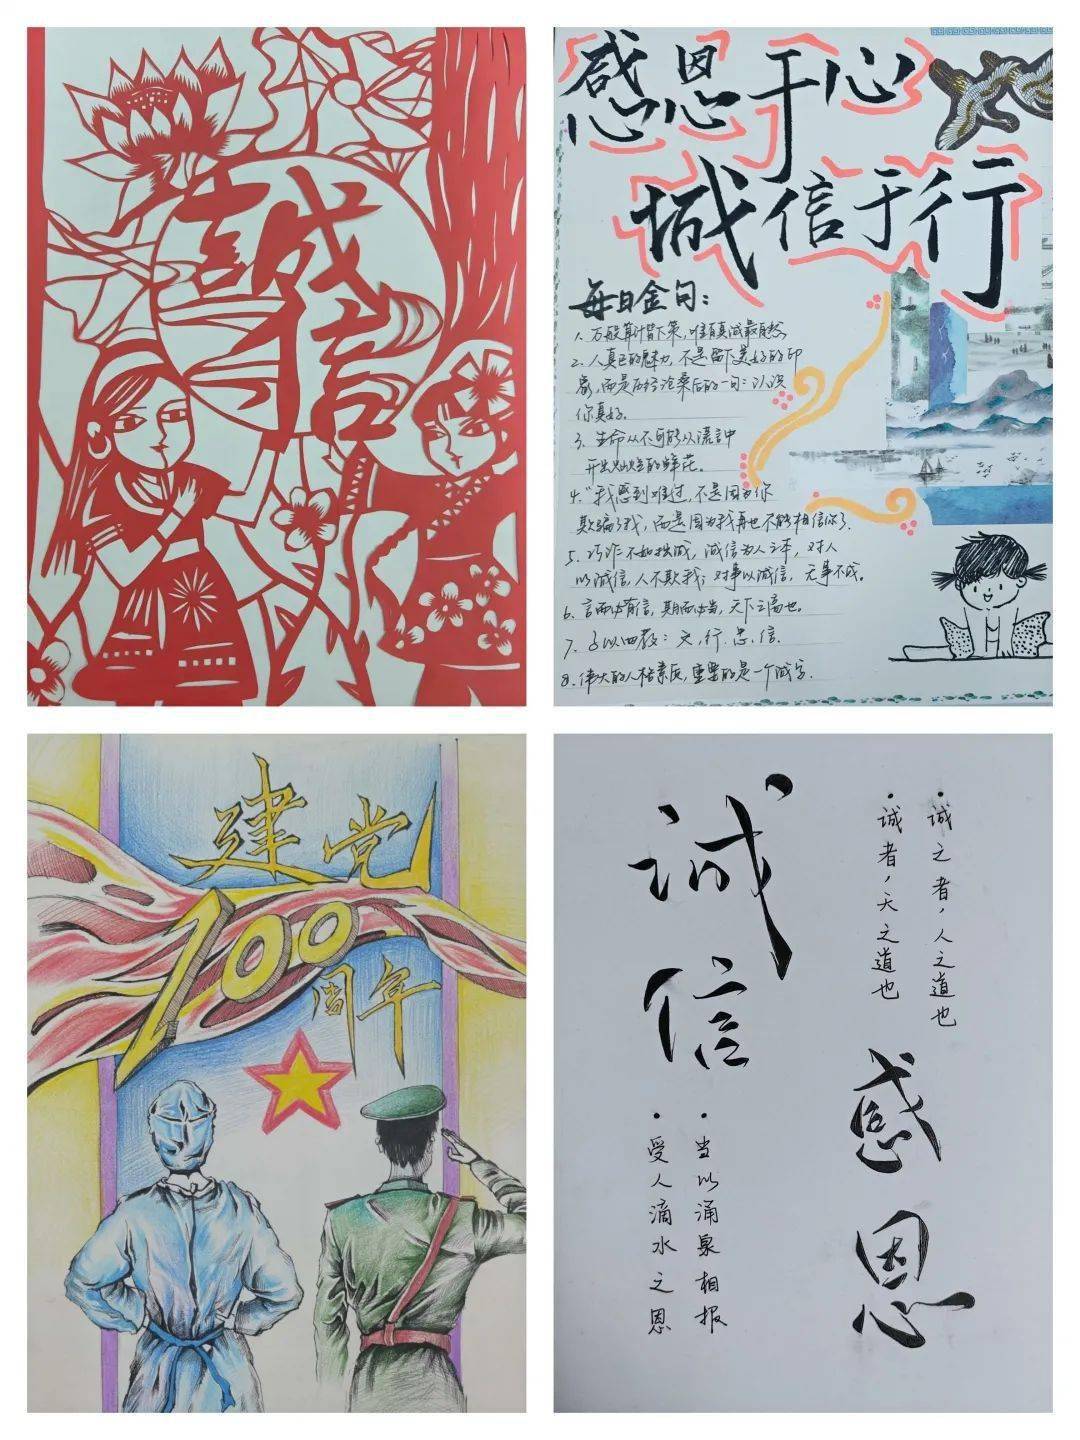 誠信
感恩于心
诚信于行
每日金句:
1. 万般算计皆下策,唯有真诚最自然
2. 人真正的魅力,不是留下美好的印
象,而是历经沧桑后的一句:认识
你真好。
3. 生命从不可能从谎言中
开出灿烂的鲜花。
4. “我感到难过,不是因为你
欺骗了我,而是因为我再也不能相信你了.
5. 巧诈不如拙诚,诚信为人之本,对人
以诚信,人不欺我;对事以诚信,无事不成。
6. 言而必有信,期而必当,天下之高也。
7. 子以四教:文,行,忠,信.
8. 伟大的人格素质,重要的是一个诚字.
建党
100
周年
·诚之者,人之道也
·诚者,天之道也
诚信
感恩
·当以涌泉相报
·受人滴水之恩